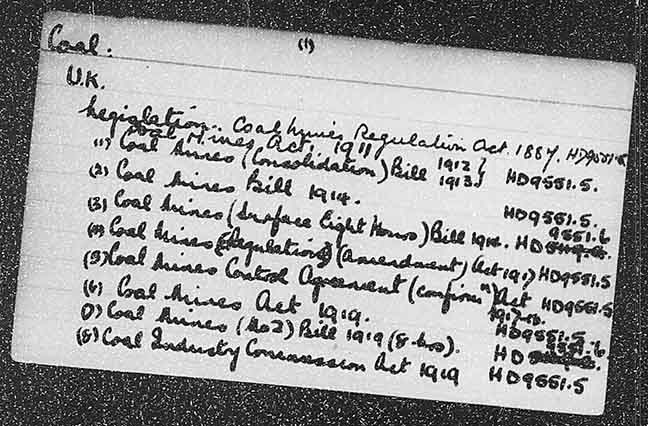 Coal. (1)
U.K.
Legislation. Coal Mines Regulation Act. 1887. HD9551.5
Coal Mines Act, 1911
(1) Coal Mines (Consolidation) Bill 1912 } 1913 } HD9551.5.
(2) Coal Mines Bill 1914. HD9551.5.
(3) Coal Mines (Surface Eight Hours) Bill 1914. HD 9551.6
(4) Coal Mines (Regulations) (Amendment) Act 1917 HD9551.5
(5) Coal Mines Control Agreement (Confirmn) Act HD9551.5
(6) Coal Mines Act 1919. HD9551.5
(7) Coal Mines (No2) Bill 1919 (8-hrs). HD 9551.6.
(8) Coal Industry Commission Act 1919 HD9551.5